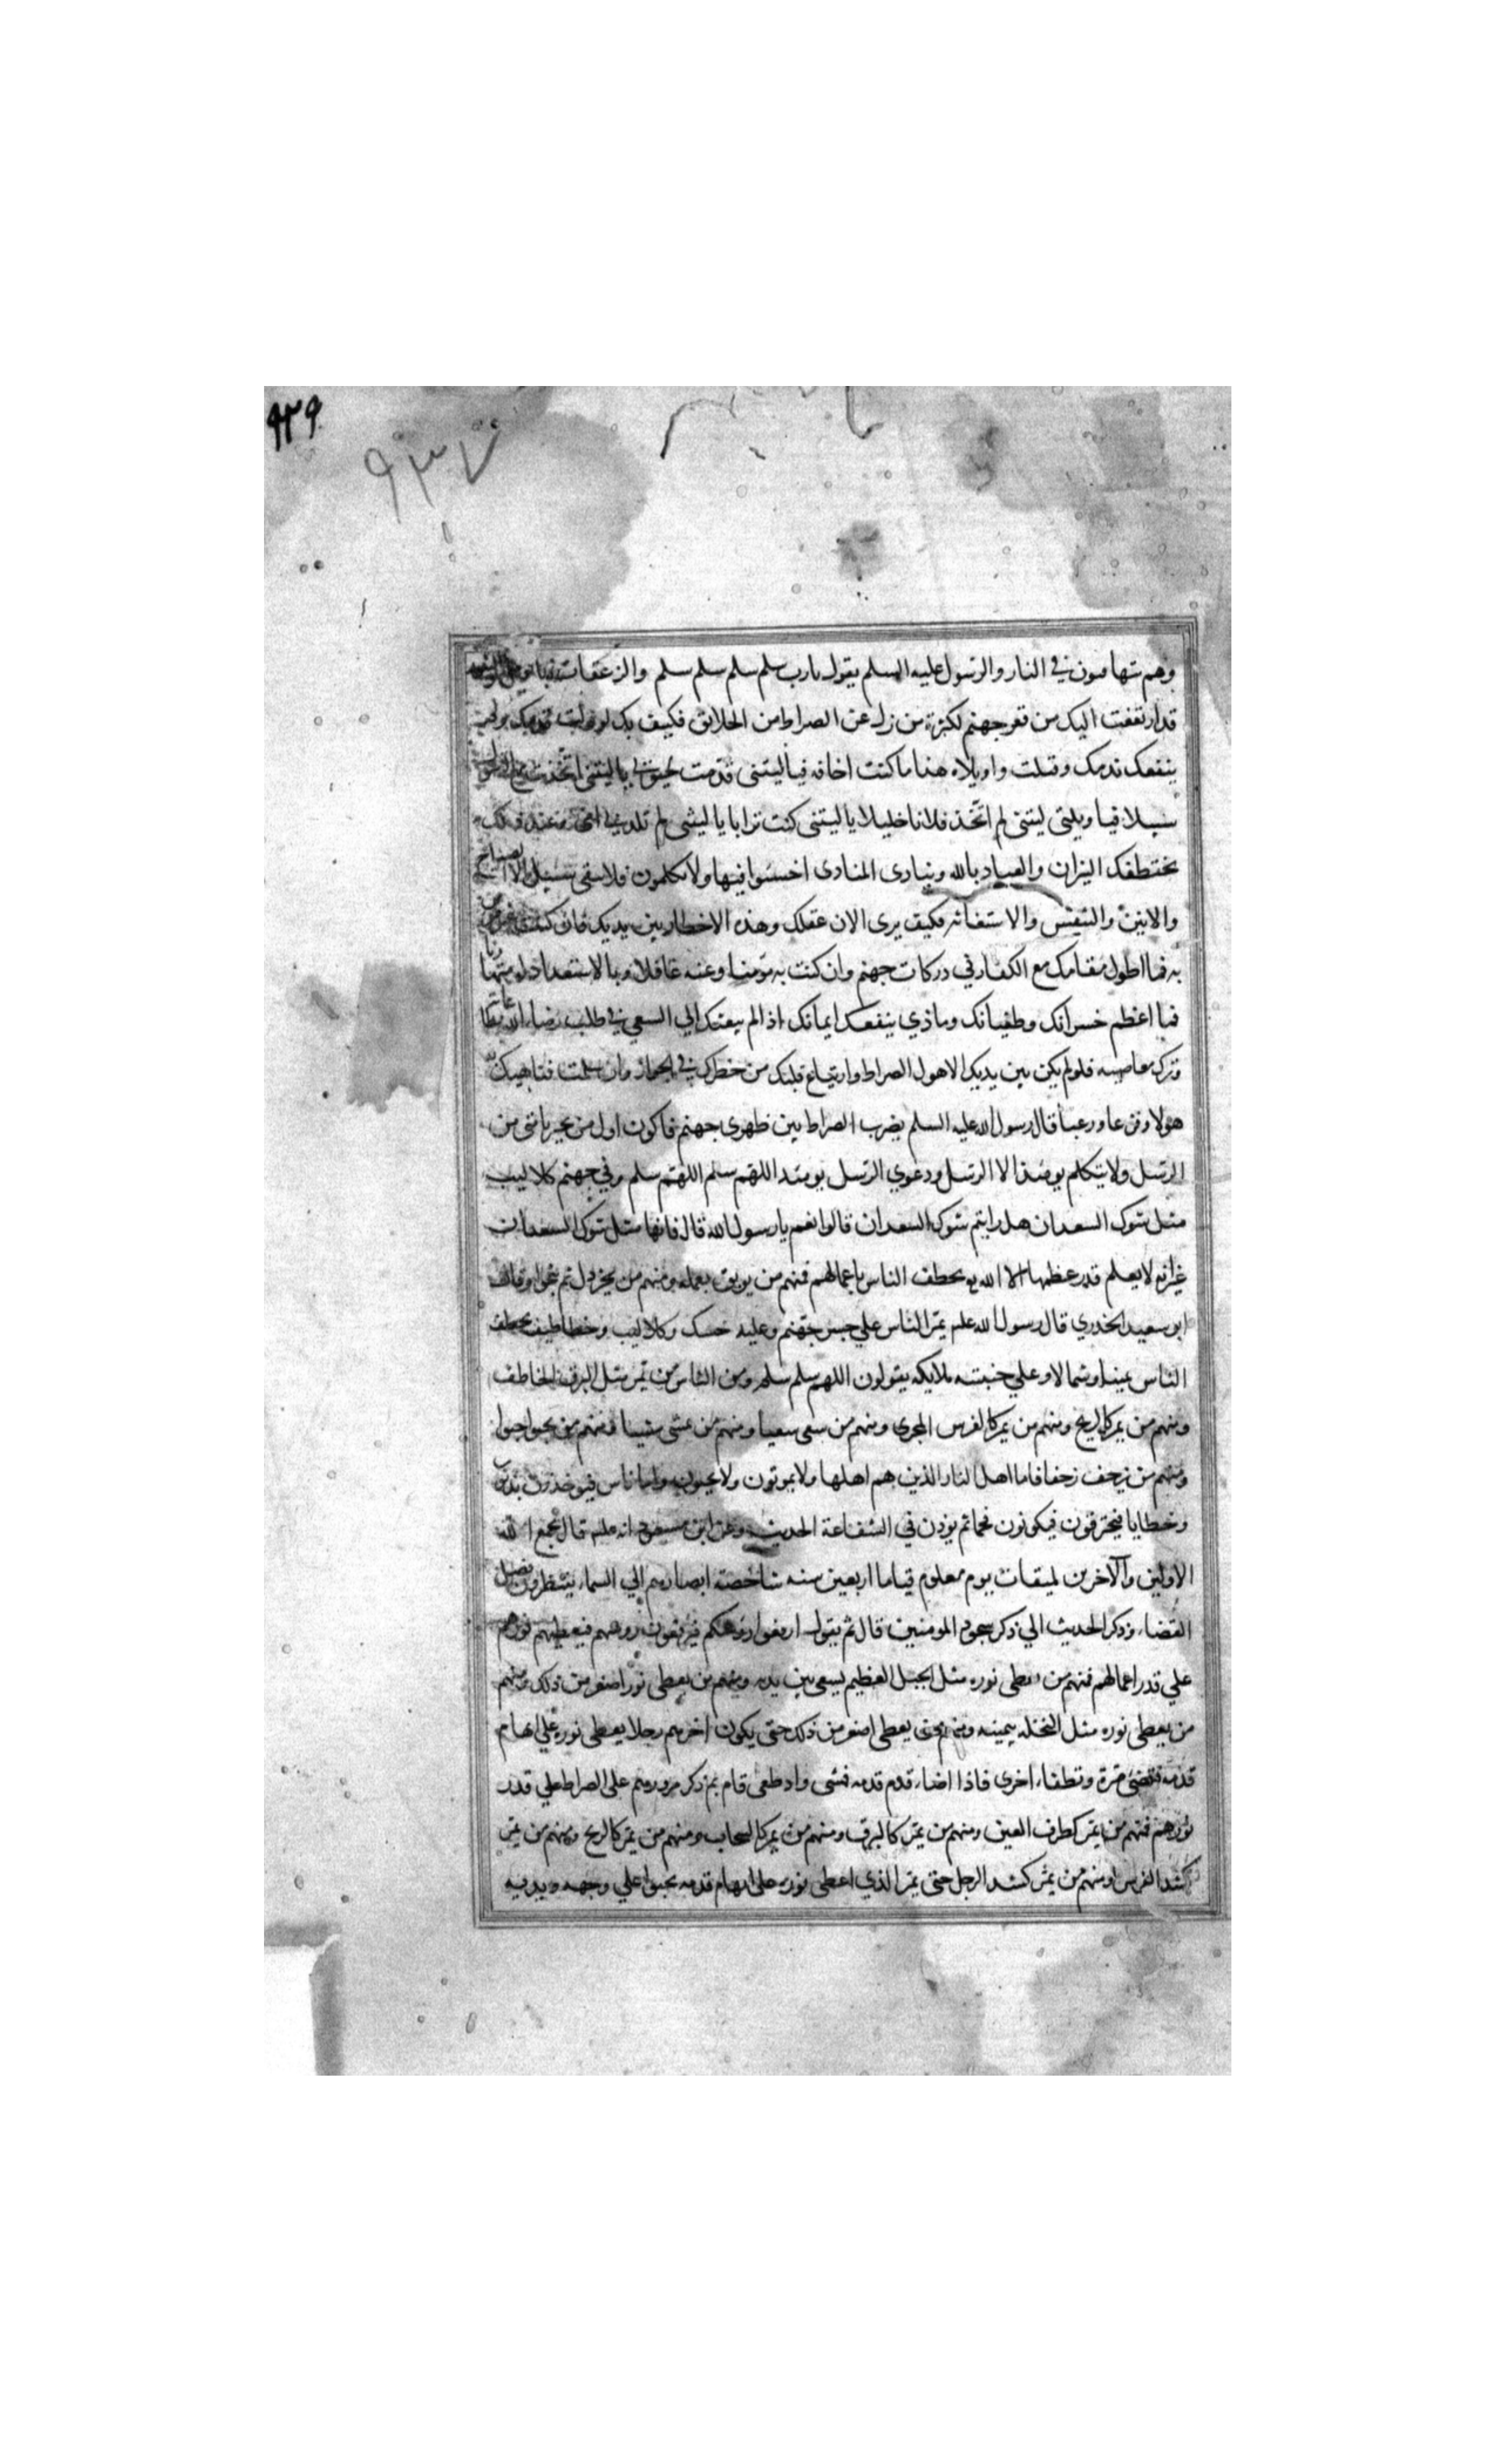 ۹۲۹
۹۳۷
وهم يتهافتون في النار والرسول عليه السلم يقول يارب سلم سلم سلم سلم والزعقات
قد ارتفعت اليك من قعر جهنم لكثرة من زل عن الصراط من الخلايق فكيف بك لو زلت قدمك ولم
ينفعك ندمك وقلت واويلاه هذا ما كنت اخافه فياليتنى قدمت لحيوتى ياليتنى اتخذت مع الرسول
سبيلا فيا ويلتى ليتنى لم اتخذ فلانا خليلا ياليتنى كنت ترابا ياليتنى لم تلدنى امى وعند ذلك
تختطفك النيران والعياد بالله وينادى المنادى اخسئوا فيها ولا تكلمون فلا يبقى سبيل الا الصياح
والانين والتنفس والاستغاثه فكيف يرى الان عقلك وهذه الاخطار بين يديك فان كنت غير مومن
به فما اطول مقامك مع الكفار في دركات جهنم وان كنت به مؤمنا وعنه غافلا وبالاستعداد له متهاونا
فما اعظم خسرانك وطغيانك وماذي ينفعك ايمانك اذا لم يبعثك الي السعي في طلب رضاء الله بطاعته
وترك معاصيه فلو لم يكن بين يديك الا هول الصراط وارتياع قلبك من خطرك في الجواز وان سلمت فناهيك به
هولا وفزعا ورعبا قال رسول الله عليه السلم يضرب الصراط بين ظهرى جهنم فاكون اول من يجيز بامتى من
الرسل ولا يتكلم يومئذ الا الرسل ودعوي الرسل يومئذ اللهم سلم اللهم سلم وفي جهنم كلاليب
مثل شوك السعدان هل رايتم شوك السعدان قالوا نعم يا رسول الله قال فانها مثل شوك السعدان
غير انه لا يعلم قدر عظمها الا الله تع تخطف الناس باعمالهم فمنهم من يوبق بعمله ومنهم من يخردل ثم ينجوا وقال
ابو سعيد الخدري قال رسول الله علم يمر الناس علي جسر جهنم وعليه حسك وكلاليب وخطاطيف تخطف
الناس يمينا وشمالا وعلي جنبتيه ملايكه يقولون اللهم سلم سلم ومن الناس من يمر مثل البرق الخاطف
ومنهم من يمر كالريح ومنهم من يمر كالفرس المجرى ومنهم من يسعى سعيا ومنهم من يمشى مشيا ومنهم من يحبوا حبوا
ومنهم من يزحف زحفا فاما اهل النار الذين هم اهلها ولا يموتون ولا يحيون واما ناس فيوخذون بذنوب
وخطايا فيحترقون فيكونون فحما ثم يوذن في الشفاعة الحديث وعن ابن مسعود انه علم قال يجمع الله
الاولين والآخرين لميقات يوم معلوم قياما اربعين سنه شاخصة ابصارهم الي السماء ينتظرون فصل
القضاء وذكر الحديث الي ذكر سجود المومنين قال ثم يقول ارفعوا رؤسكم فيرفعون رؤسهم فيعطيهم نورهم
علي قدر اعمالهم فمنهم من يعطى نوره مثل الجبل العظيم يسعى بين يديه ومنهم من يعطى نورا اصغر من ذلك ومنهم
من يعطى نوره مثل النخله بيمينه ومنهم من يعطى اصغر من ذلك حتى يكون اخرهم رجلا يعطى نوره علي ابهام
قدمه فيضئ مرة وتطفاء اخرى فاذا اضاء قدم قدمه فمشى واذ طفى قام ثم ذكر مرورهم على الصراط علي قدر
نورهم فمنهم من يمر كطرف العين ومنهم من يمر كالبرق ومنهم من يمر كالسحاب ومنهم من يمر كالريح ومنهم من يمر
كشد الفرس ومنهم من يمر كشد الرجل حتى يمر الذي اعطى نوره على ابهام قدمه يحبوا علي وجهه ويديه